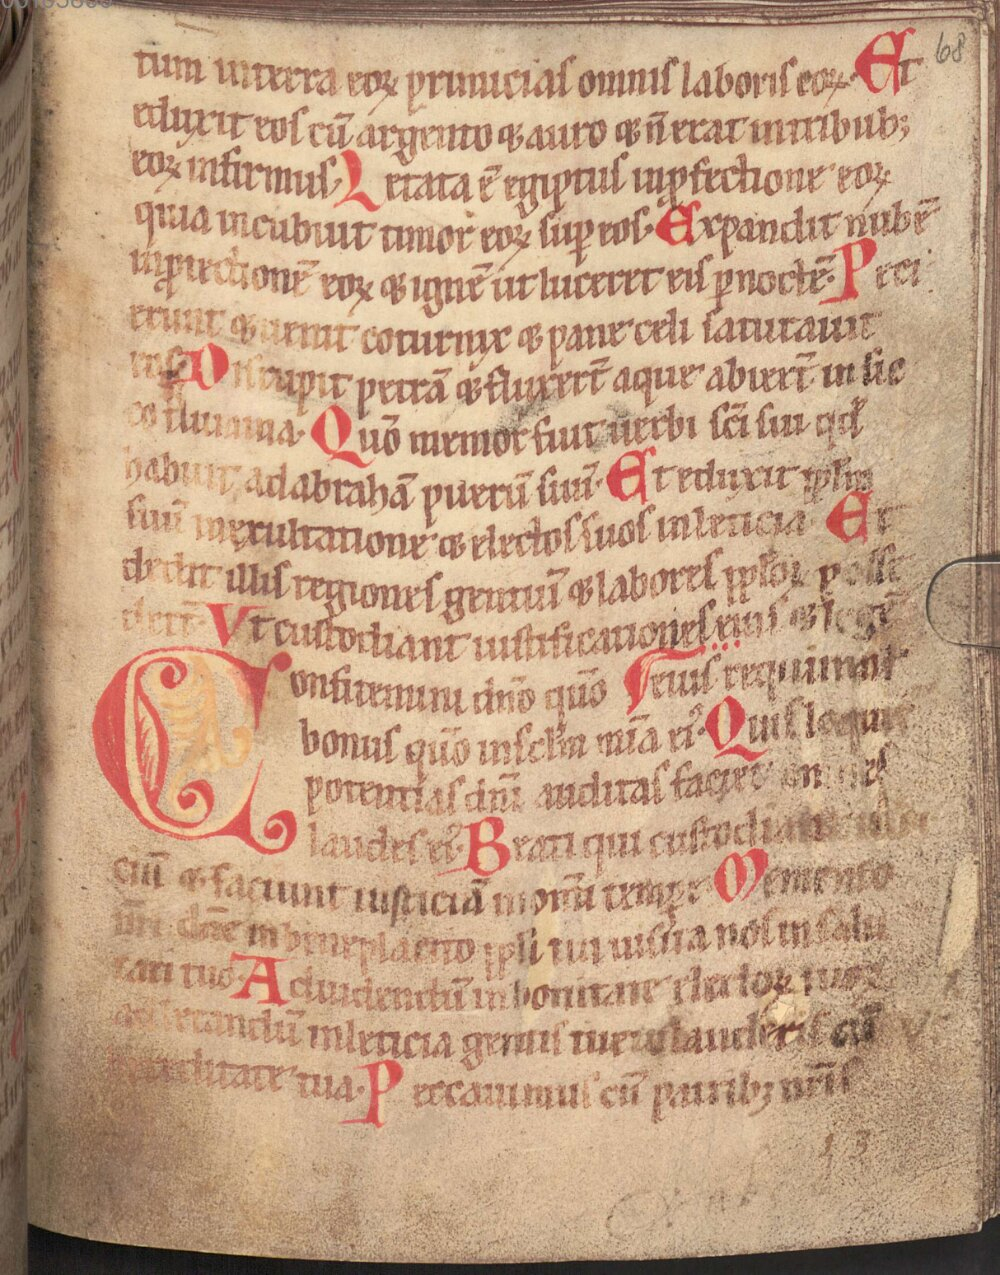 68
tum in terra eoꝝ primicias omnis laboris eoꝝ. Et
eduxit eos cū argento ⁊ auro ⁊ n̄ erat in tribubꝫ
eoꝝ infirmus. Letata ē egiptus in ꝓfectione eoꝝ
quia incubuit timor eoꝝ suꝑ eos. Expandit nubē
in ꝓtectionē eoꝝ ⁊ ignē ut luceret eis ꝑ noctē. Peti
erunt ⁊ uenit coturnix ⁊ pane celi saturauit
eos. Disrupit petrā ⁊ fluxert̄ aque abiert̄ in sic
co flumina. Quō memor fuit uerbi sc̄i sui qd̄
habuit ad abrahā puerū suū. Et eduxit ppl̄m
suū in exultatione ⁊ electos suos in leticia. Et
dedit illis regiones gentiū ⁊ labores ppl̄oꝝ posse
dert̄. Vt custodiant iustificationes eius ⁊ legē
Confitemini dn̄o quō eius requirant
bonus quō in sclm̄ mīa ei᷒. Quis loquet᷑
potentias dn̄i auditas faciet omnes
laudes ei᷒. Beati qui custodiunt iudi
ciū ⁊ faciunt iusticiā in om̄i tempe Memento
nr̄i dn̄e in beneplacito ppl̄i tui uisita nos in salu
tari tuo. Ad uidendū in bonitate electoꝝ tuoꝝ
ad letandū in leticia gentis tue ut lauderis cū
hereditate tua. Peccauimus cū patribꝫ nr̄is
13